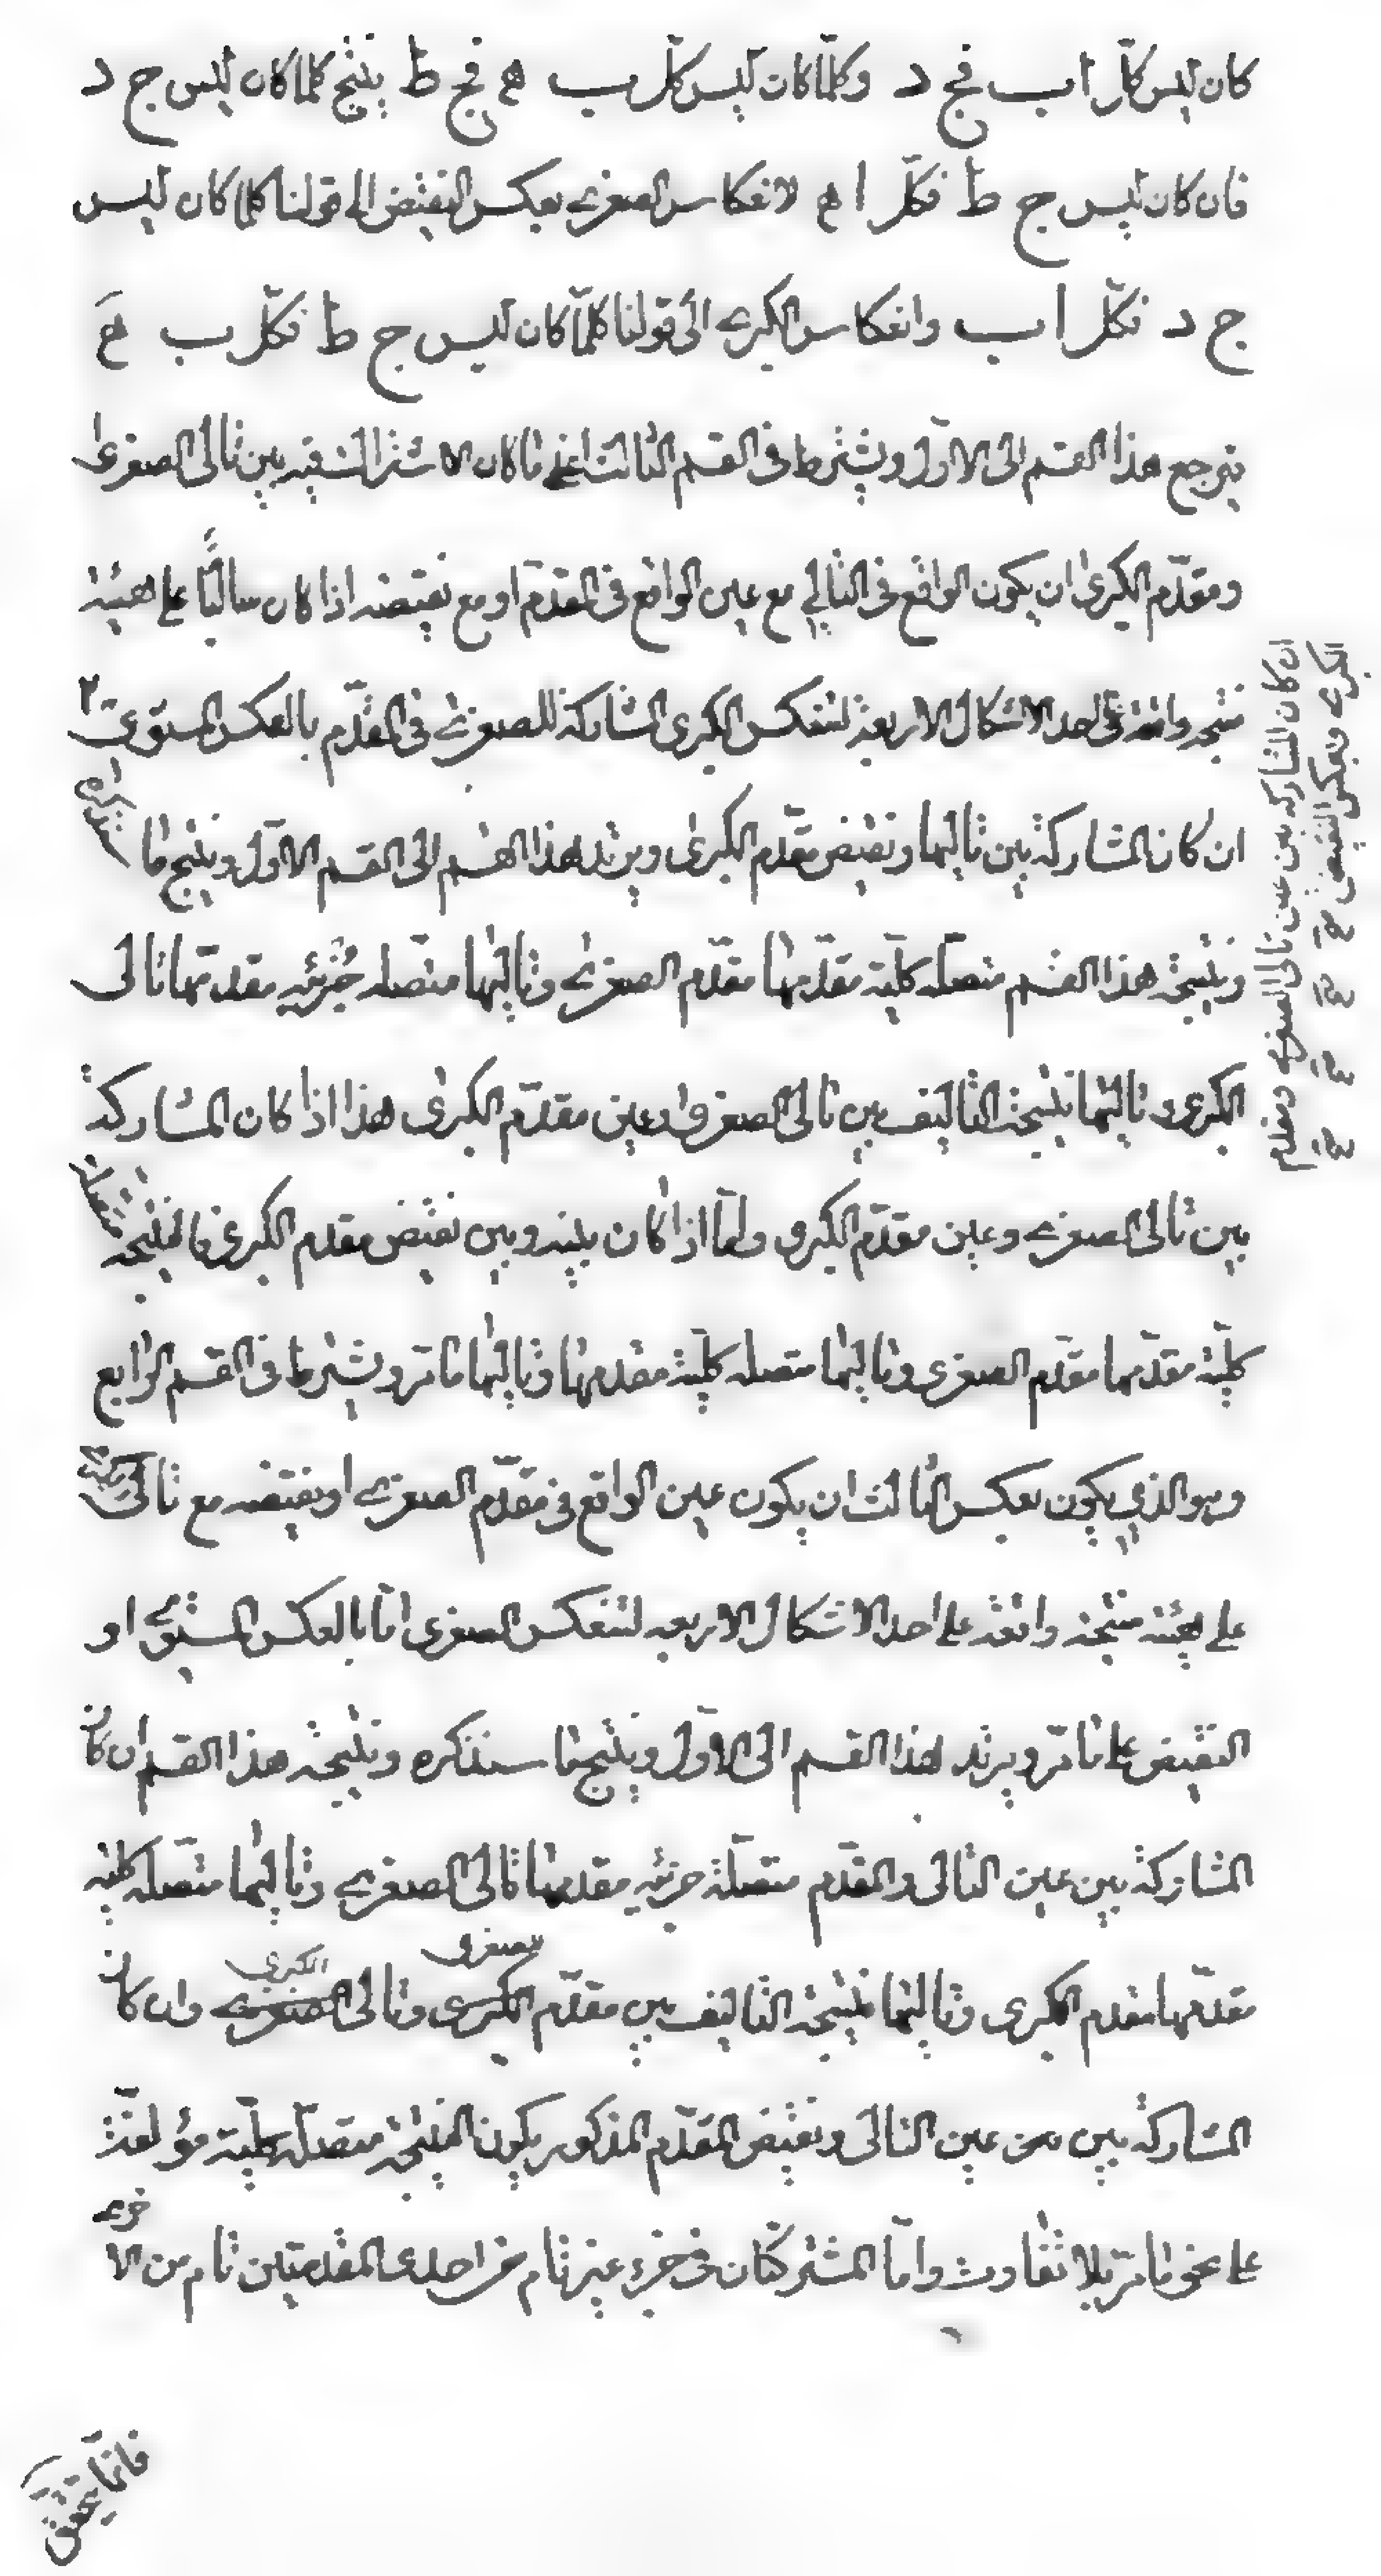 كان ليس كلّ ا ب فج د وكلّما كان ليس كلّ ب ه فج ط ينتج كلما كان ليس ج د
فان كان ليس ج ط فكلّ ا ه لانعكاس الصغرى بعكس النقيض الى قولنا كلما كان ليس
ج د فكلّ ا ب وانعكاس الكبرى الى قولنا كلمّا كان ليس ج ط فكلّ ب ه
يرجع هذا القسم الى الاوّل ويشترط فى القسم الثالث اعنى ما كان الاشتراك فيه بين تالى الصغرى
ومقدّم الكبرى ان يكون الواقع فى التالي مع عين الواقع فى المقدّم او مع نقيضه اذا كان سالبًا على هيئة
منتجه واقعة على احد الاشكال الاربعة لتنعكس الكبرى المشاركة للصغرى فى المقدّم بالعكس المستوى ٢
ان كان المشاركة بين تاليها ونقيض مقدّم الكبرى ويرتد هذا القسم الى القسم الاوّل وينتج ما سنذكره
ونتيجة هذا القسم متصلة كلّية مقدّمها مقدّم الصغرى وتاليها متصّله جُزئيه مقدمّها تالى
الكبرى وتاليها نتيجة التاليف بين تالى الصغرى وعين مقدّم الكبرى هذا اذا كان المشاركة
بين تالى الصغرى وعين مقدّم الكبرى وامّا اذا كان بينه وبين نقيض مقدم الكبرى فالنتيجة متصلة
كلّية مقدّمها مقدّم الصغرى وتاليها متصله كلّية مقدمها وتاليها ما مّر ويشترط فى القسم الرابع
وهو الذي يكون بعكس الثالث ان يكون عين الواقع فى مقدّم الصغرى او نقيضه مع تالى الكبرى
على هيئة منتجة واقعة على احد الاشكال الاربعه لتنعكس الصغرى امّا بالعكس المستوى او
النقيض على ما مّر ويرتد هذا القسم الى الاوّل وينتج ما سنذكره ونتيجة هذا القسم ان كان
المشاركة بين عين التالى والمقدّم متصّلة جزئيه مقدمها تالى الصغرى وتاليها متصّله كليّه
مقدّمها مقدم الكبرى وتاليها نتيجة التاليف بين مقدّم الصغرى وتالى الكبرى وان كان
المشاركة بين عين التالى ونقيض المقدّم المذكور يكون النتيجة متصلّة كلّية مؤلفة
على نحو ما مّر بلا تفاوت وامّا المشتركتان فى جزء غير تام من احدى المقدمتين تام من الاخرى
فانّما يتحقق
ان كان المشاركة بين عين تالى الصغرى ومقدم
الكبرى وبعكس النقيض صح صح صح صح